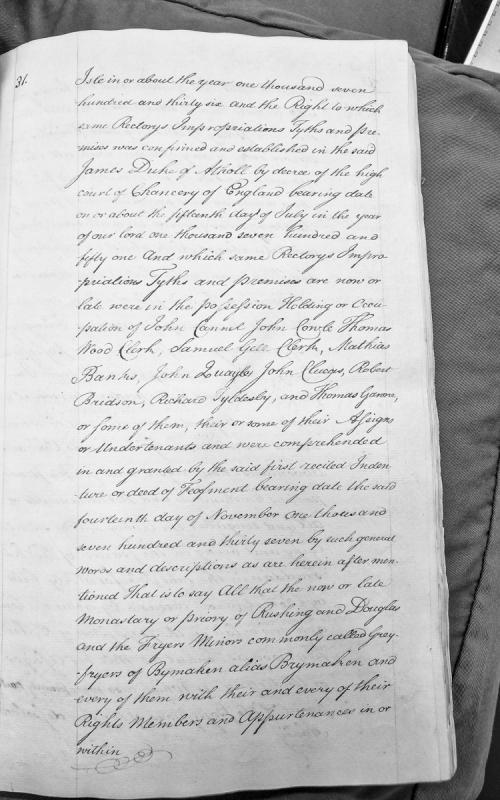 31.
Isle in or about the year one thousand seven
hundred and thirty six and the Right to which
same Rectorys Impropriations Tyths and pre-
mises was confirmed and established in the said
James Duke of Atholl by decree of the high
court of Chancery of England bearing date
on or about the fifteenth day of July in the year
of our lord one thousand seven hundred and
fifty one And which same Rectorys Impro-
priations Tyths and premises are now or
late were in the possession Holding or Occu
pation of John Cannel John Cowle Thomas
Wood Clerk, Samuel Gell Clerk, Mathias
Banks, John Quayle John Clucas, Robert
Bridson, Richard Tyldesly, and Thomas Gawne,
or some of them, their or some of their Assigns
or Undertenants and were comprehended
in and granted by the said first recited Inden
ture or deed of Feofment bearing date the said
fourteenth day of November One thousand
seven hundred and thirty seven by such general
words and descriptions as are herein after men-
tioned That is to say All that the now or late
Monastary or priory of Rushing and Douglas
and the Fryers Minors commonly called Grey-
fryers of Bymaken alias Brymaken and
every of them with their and every of their
Rights Members and Appurtenances in or
within